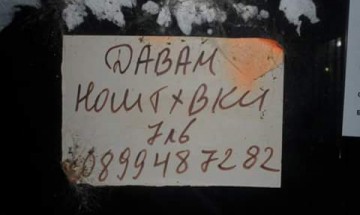 ДАВАМ
НОШТХВКИ
7лв
0899487282